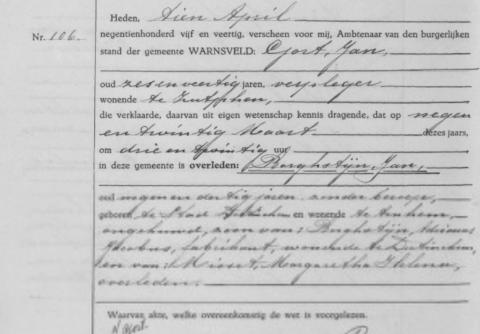 Nr. 106.
Heden, tien April
negentienhonderd vijf en veertig, verscheen voor mij, Ambtenaar van den burgerlijken
stand der gemeente WARNSVELD: Jan,
oud zesenveertig jaren, verpleger
wonende te Zutphen,
die verklaarde, daarvan uit eigen wetenschap kennis dragende, dat op negen
en twintig Maart dezes jaars,
om drie en twintig uur
in deze gemeente is overleden: Borghstijn, Jan,
oud negenen dertig jaren, zonder beroep,
geboren te Stad en wonende te Arnhem,
ongehuwd, zoon van: Borghstijn, Adrianus
Jacobus, fabrikant, wonende te Doetinchem,
en van: Misset, Margaretha Helena,
overleden.
Waarvan akte, welke overeenkomstig de wet is voorgelezen.